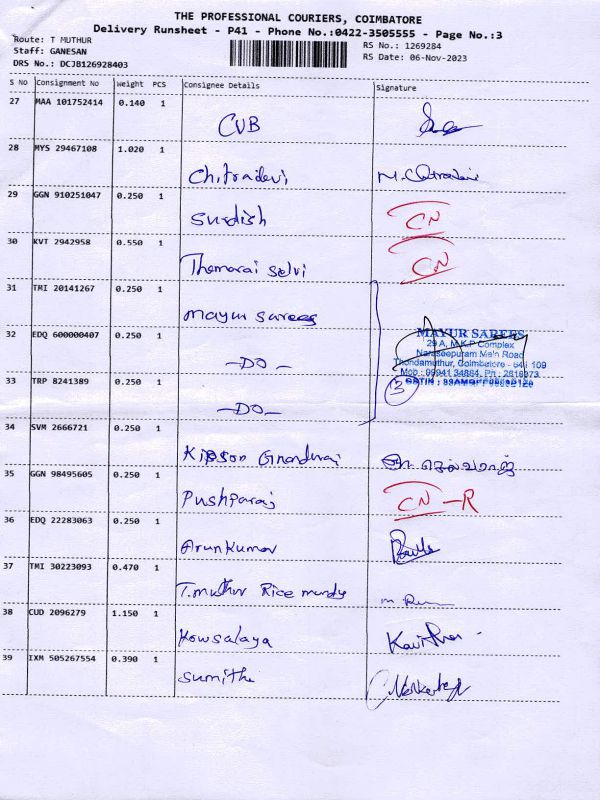 THE PROFESSIONAL COURIERS, COIMBATORE
Delivery Runsheet - P41 - Phone No.:0422-3505555 - Page No.:3
Route: T MUTHUR
Staff: GANESAN
DRS No.: DCJB126928403
RS No.: 1269284
RS Date: 06-Nov-2023
S No Consignment No Weight PCS Consignee Details Signature
27 MAA 101752414 0.140 1
CVB
28 MYS 29467108 1.020 1
Chitradevi
29 GGN 910251047 0.250 1
CN
30 KVT 2942958 0.550 1
Themarai selvi CN
31 TMI 20141267 0.250 1
Mayur Sarees
32 EDQ 600000407 0.250 1
-DO-
33 TRP 8241389 0.250 1
-DO-
MAYUR SAREES
29 A, M.K.P Complex
Naraseepuram Main Road
Thondamuthur, Coimbatore - 641 109
3
34 SVM 2666721 0.250 1
35 GGN 98495605 0.250 1
Pushparaj CN -R
36 EDQ 22283063 0.250 1
Arunkumar
37 TMI 30223093 0.470 1
T.muthur Rice mundy
38 CUD 2096279 1.150 1
Kowsalaya
39 IXM 505267554 0.390 1
Sumithi